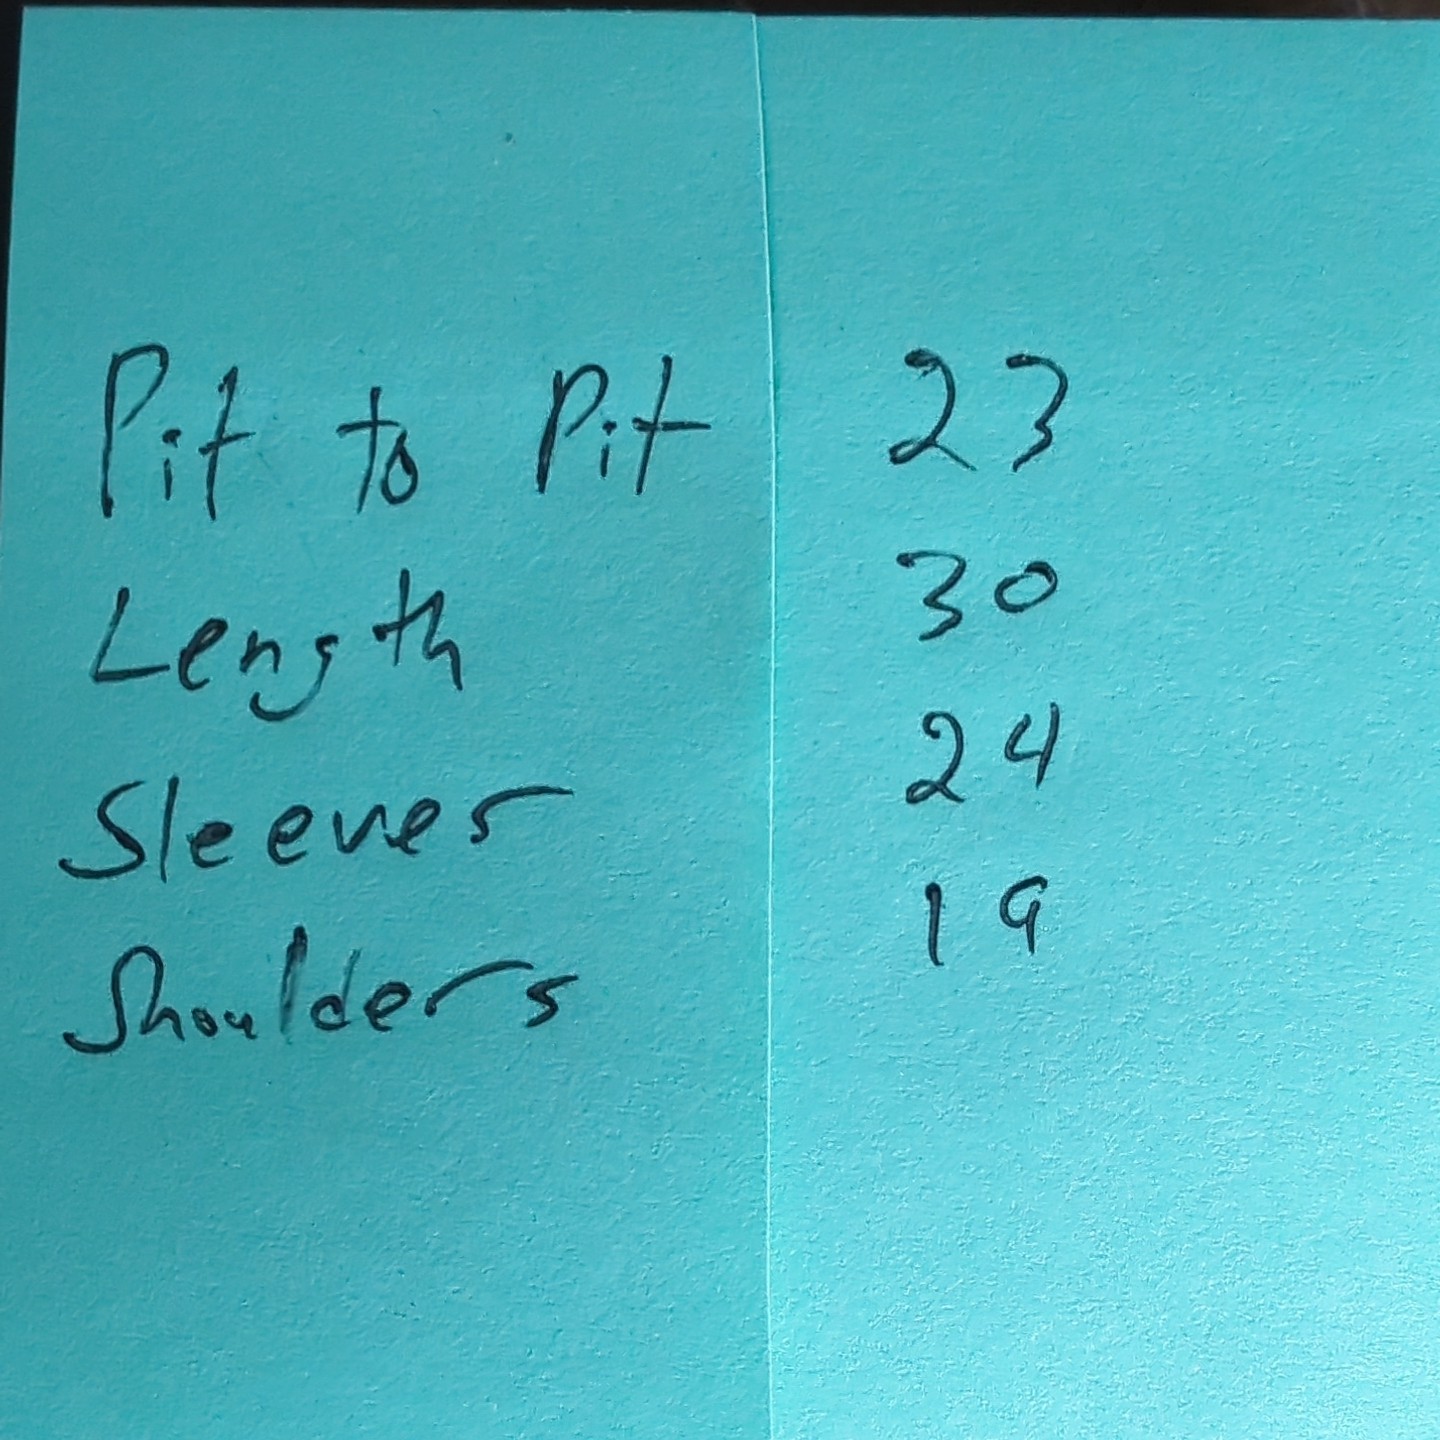 Pit to Pit 23
Length 30
Sleeves 24
Shoulders 19